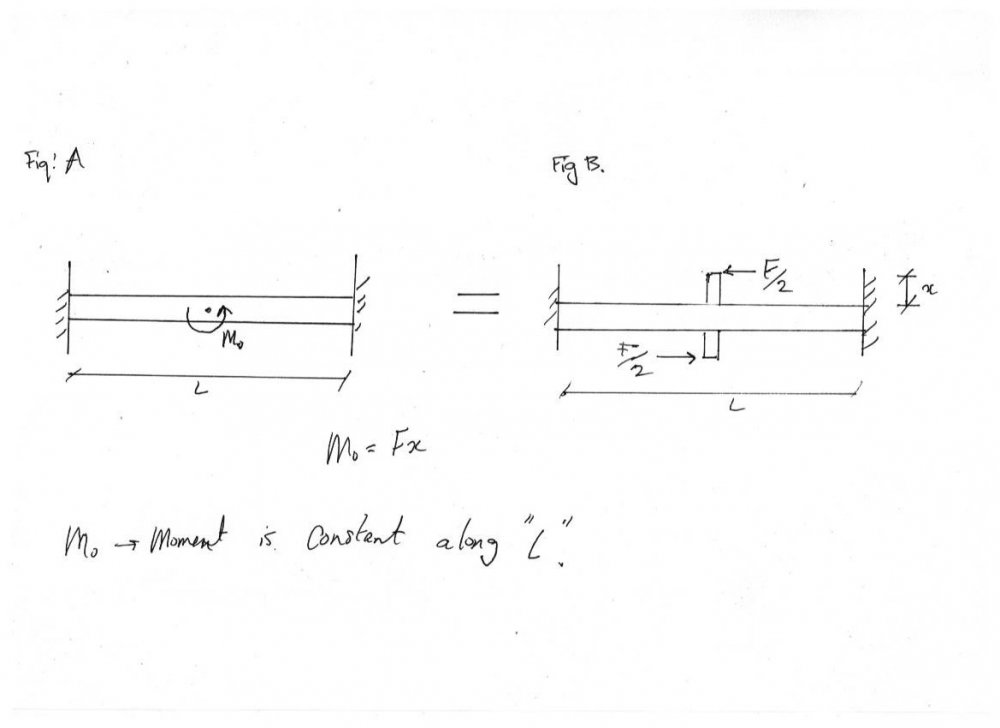 Fig: A
Fig B.
F/2
x
M₀
F/2
L
L
M₀ = Fx
M₀ → Moment is Constant along "L".